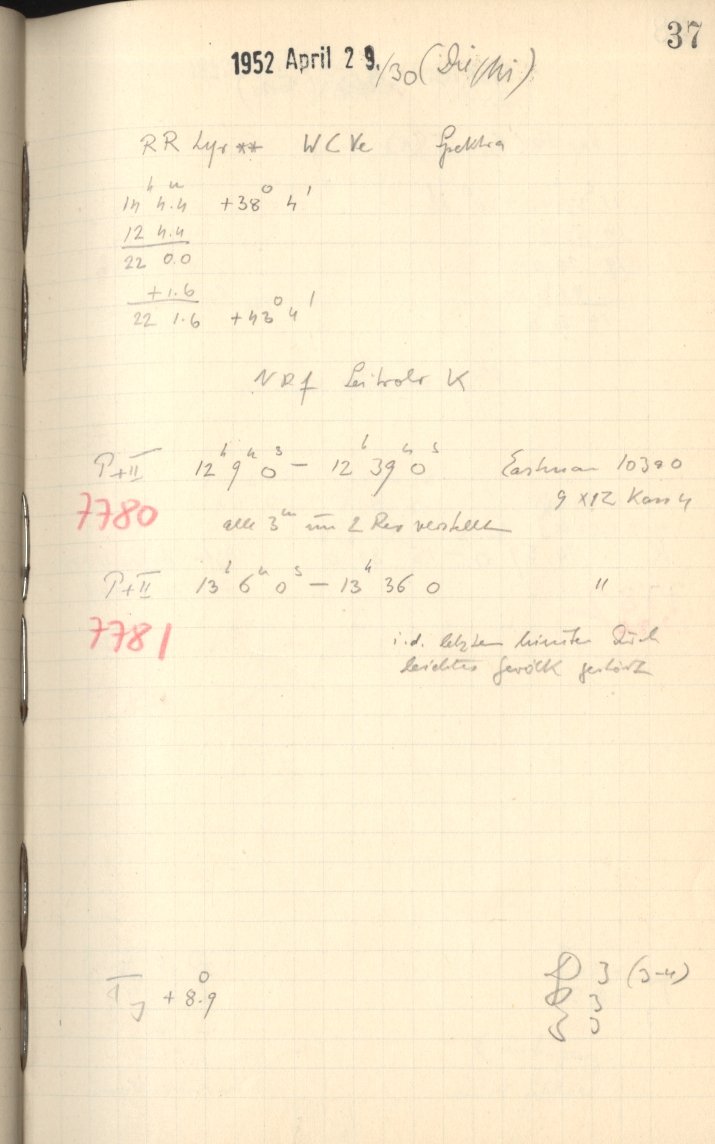 37
1952 April 29./30 (Di/Mi)
RR Lyr ** W C Ve Spektra
14ʰ 4.4ᵐ +38° 4'
12 4.4
22 0.0
+1.6
22 1.6 +43° 4'
Leitrohr K
P+II 12ʰ 9ᵐ 0ˢ – 12ʰ 39ᵐ 0ˢ Eastman 103a0
9 x 12 Kass 4
7780
alle 3ᵐ um 2 Rev verstellt
P+II 13ʰ 6ᵐ 0ˢ – 13ʰ 36 0 "
7781
i.d. letzten Minuten durch
leichtes Gewölk gestört
T + 8.9°
D 3 (3-4)
R 3
3